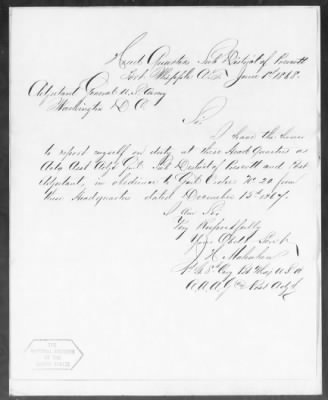 Head Quarters Sub District of Prescott
Fort Whipple A.T. June 1st 1868.
Adjutant General U.S. Army
Washington D.C.
Sir
I have the honor
to report myself on duty at these Head Quarters as
Actg Asst Adjt Genl. Sub District of Prescott and Post
Adjutant, in obedience to Genl Orders No 20 from
these Headquarters dated December 13th 1867.
I Am Sir
Very Respectfully
Your Obdt Servt
A.A.A.G. & Post Adjt
THE
NATIONAL ARCHIVES
OF THE
UNITED STATES